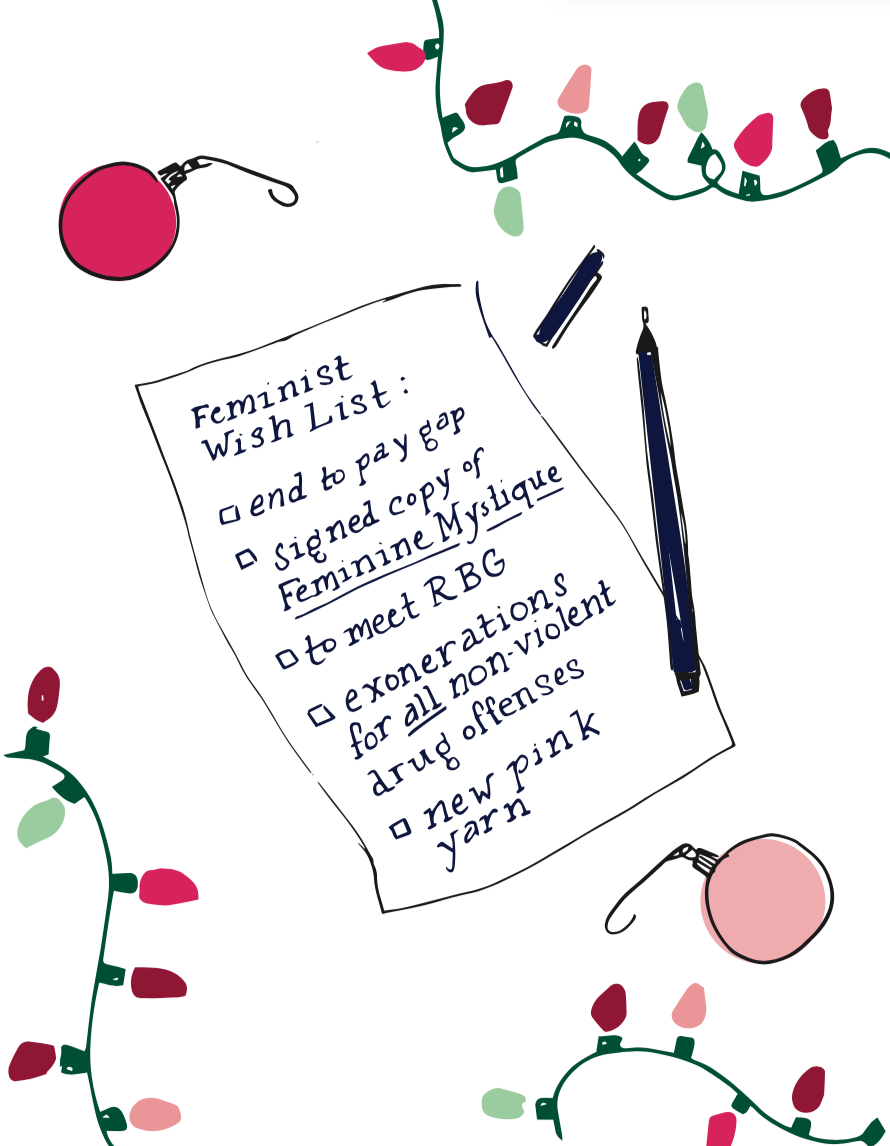 Feminist
Wish List:
end to pay gap
signed copy of
Feminine Mystique
to meet RBG
exonerations
for all non-violent
drug offenses
new pink
yarn